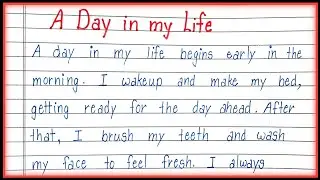 A Day in my Life
A day in my life begins early in the
morning. I wakeup and make my bed,
getting ready for the day ahead. After
that, I brush my teeth and wash
my face to feel fresh. I always